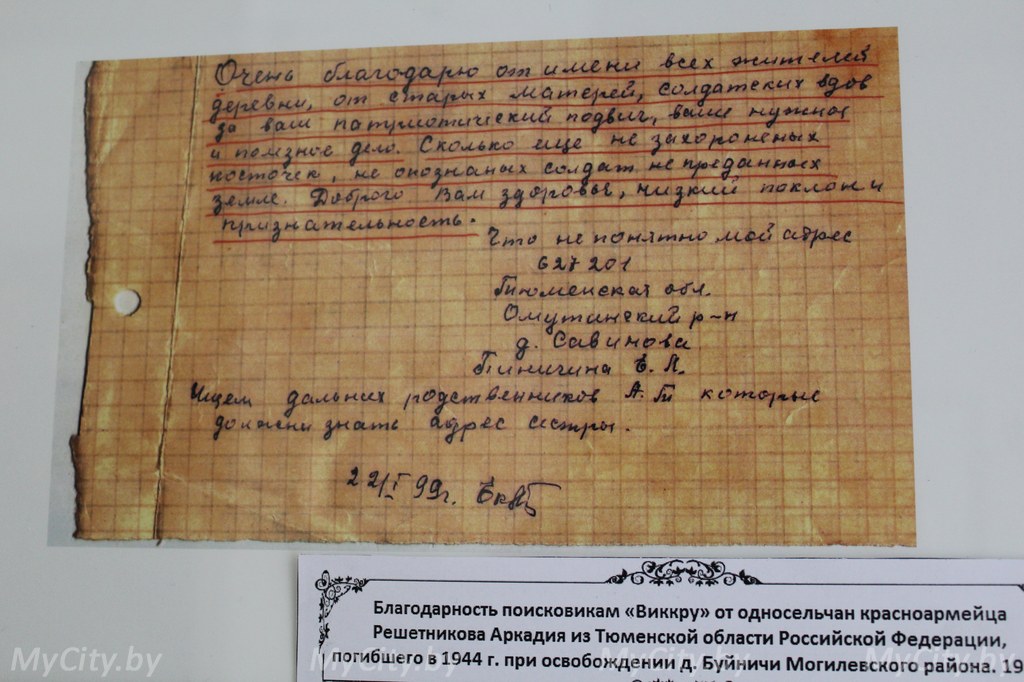 Очень благодарю от имени всех жителей
деревни, от старых матерей, солдатских вдов
за ваш патриотический подвиг, ваше нужное
и полезное дело. Сколько еще не захороненых
косточек, не опознаных солдат не преданных
земле. Доброго Вам здоровья, низкий поклон и
признательность.
Что не понятно мой адрес
627201
Тюменская обл.
Омутинский р-н
д. Савинова
Е. Л.
Ищем дальних родственников А.Т которые
должны знать адрес сестры.
22/I 99г.
Благодарность поисковикам «Виккру» от односельчан красноармейца
Решетникова Аркадия из Тюменской области Российской Федерации,
погибшего в 1944 г. при освобождении д. Буйничи Могилевского района. 19
MyCity.by
MyCity.by
MyCity.by
MyCity.by